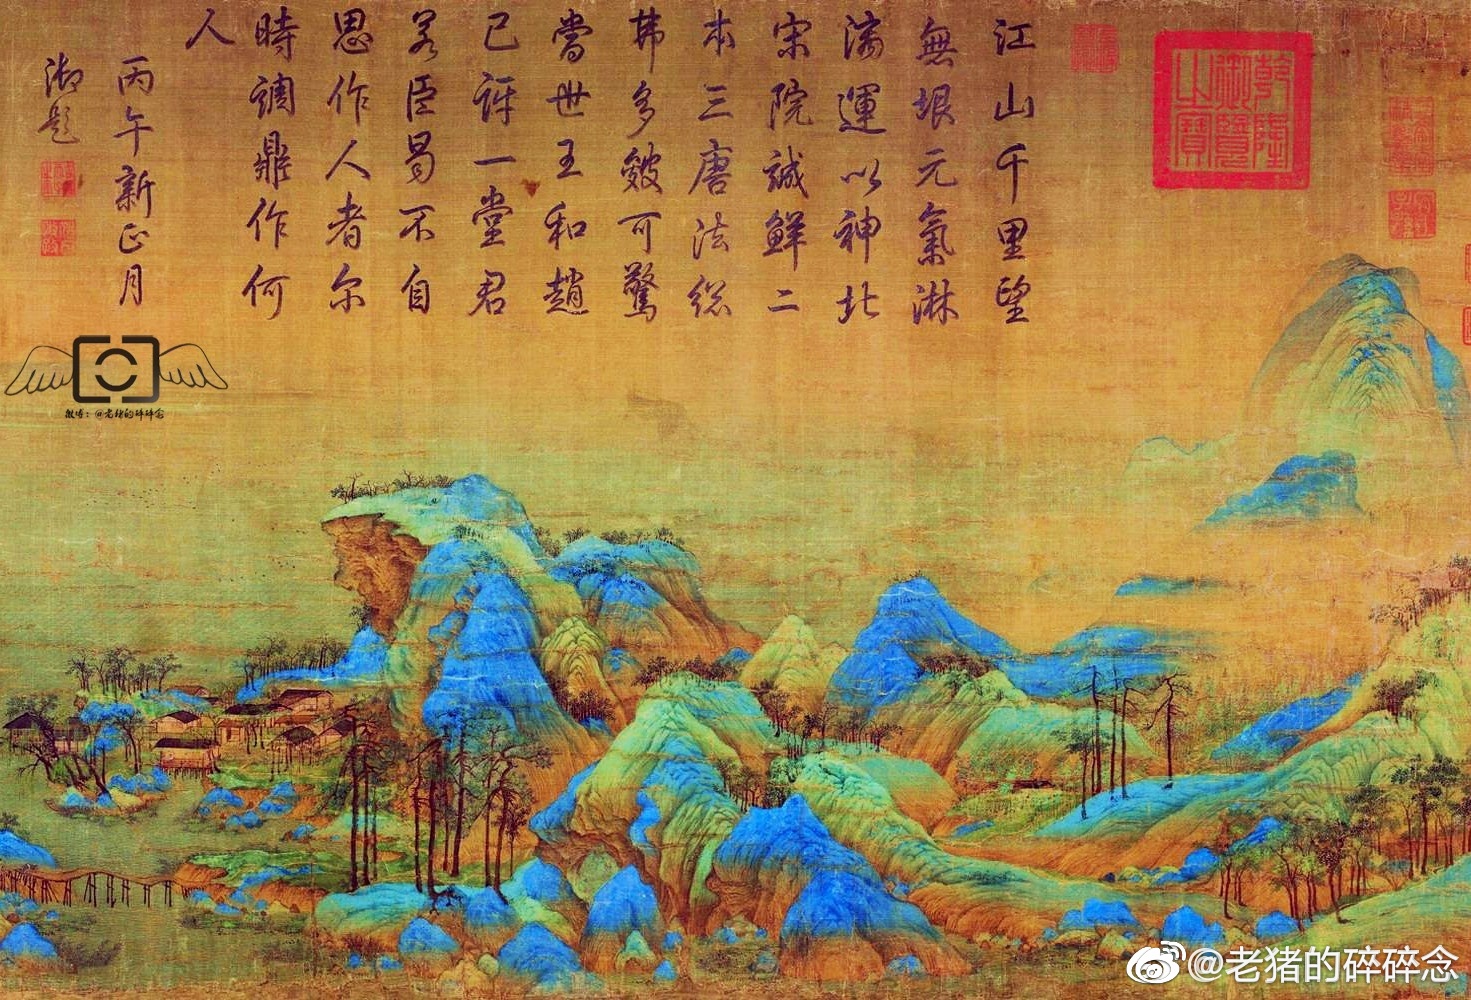 江山千里望
無垠元氣淋
漓運以神北
宋院誠鮮二
本三唐法總
弗多皴可驚
當世王和趙
已訝一堂君
若臣曷不自
思作人者尔
時調鼎作何
人
丙午新正月
御題
乾隆御覽之寶
微博：@老猪的碎碎念
@老猪的碎碎念